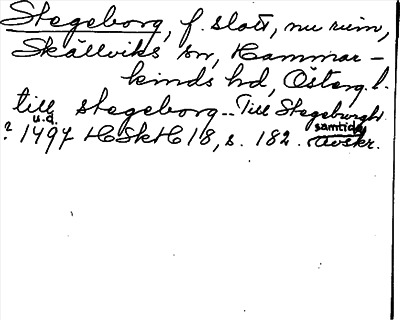 Stegeborg, f. slott, nu ruin,
Skällviks sn, Hammar-
kinds hd, Österg. l.
till stegeborg.. Till Stegeborgh
u.d.
samtida
? 1497 HSkH 18, s. 182. avskr.